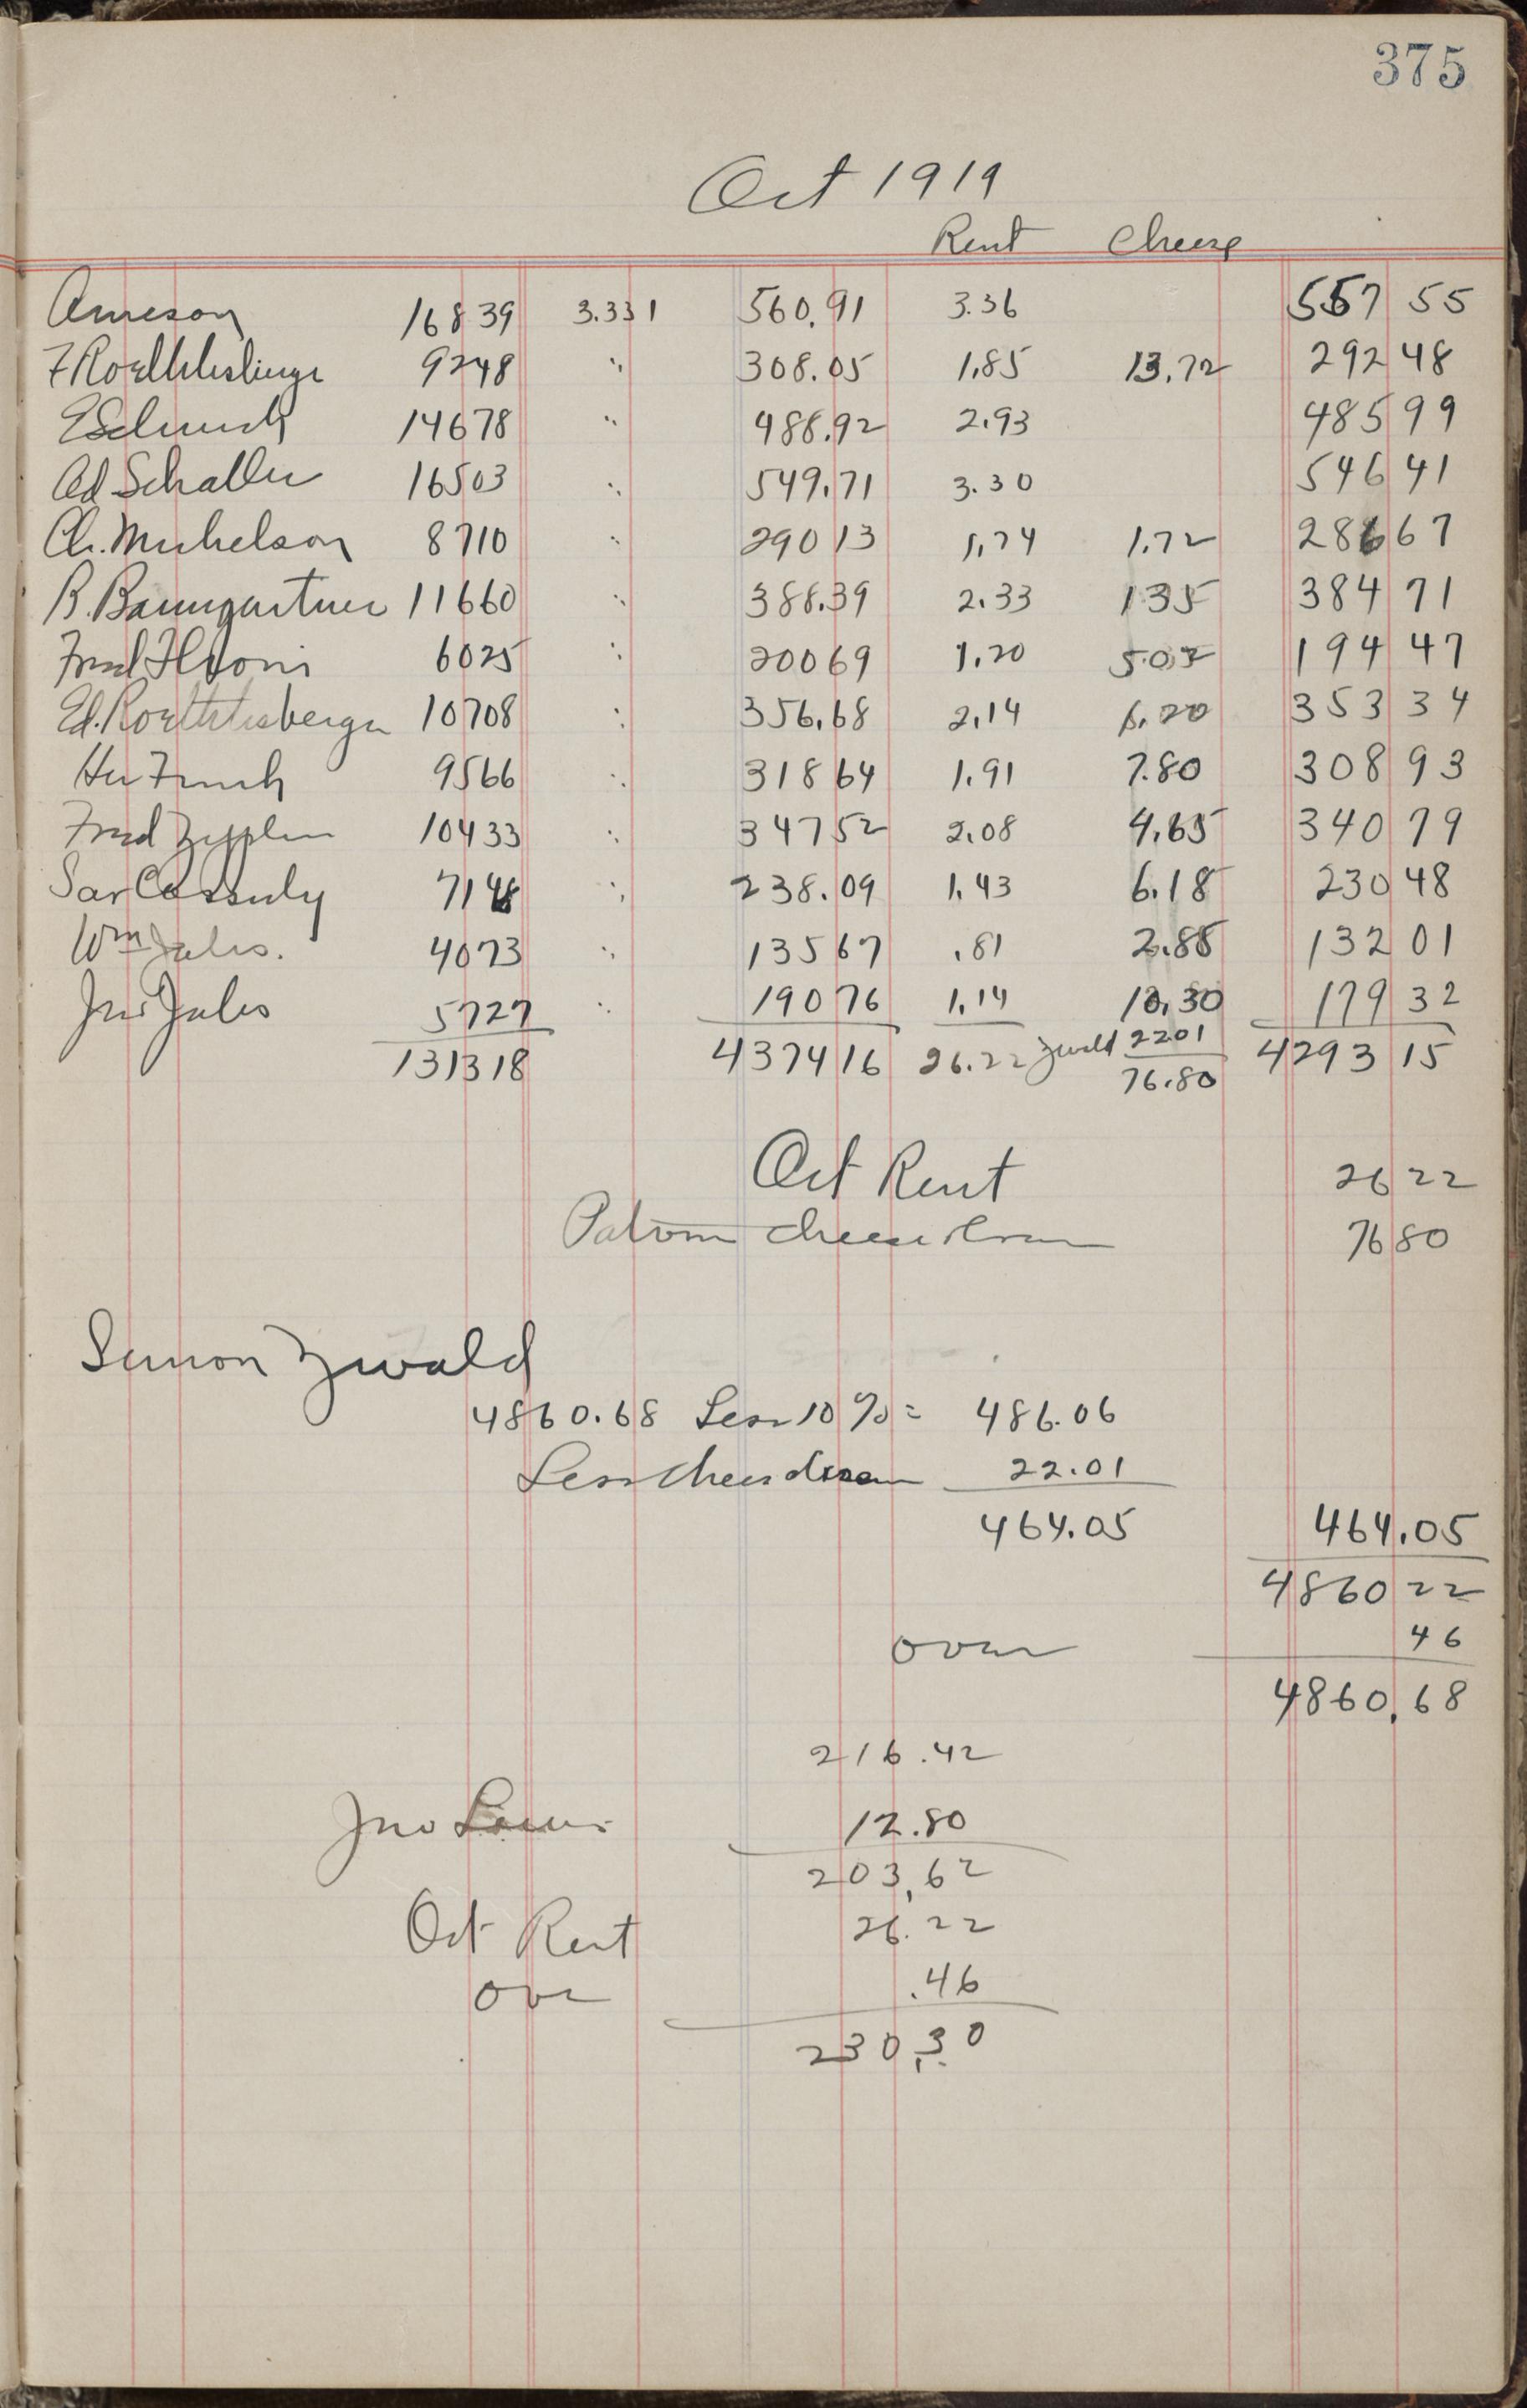 375
Oct 1919
Rent Cheese
Arneson 16839 3.331 560.91 3.36 557 55
F Roethlisberger 9248 " 308.05 1.85 13.72 292 48
14678 " 488.92 2.93 485 99
Ad Schaller 16503 " 549.71 3.30 546 41
Ch. Michelson 8710 " 290 13 1.74 1.72 286 67
R. Baumgartner 11660 " 388.39 2.33 1 35 384 71
Fred 6025 " 200 69 1.20 5.02 194 47
Ed. Roethlisberger 10708 " 356.68 2.14 1.20 353 34
9566 " 318 64 1.91 7.80 308 93
Fred 10433 " 347 52 2.08 4.65 340 79
7148 " 238.09 1.43 6.18 230 48
Wm Jules. 4073 " 135 67 .81 2.85 132 01
Jno Jules 5727 " 190 76 1.14 10.30 179 32
131318 4374 16 26.22 Zwald 22 01 4293 15
76.80
Oct Rent 26 22
Patrons cheese 76 80
Simon Zwald
4860.68 Less 10% = 486.06
Less chees 22.01
464.05 464.05
4860 22
over 46
4860.68
216.42
Jno 12.80
203.62
Oct Rent 26.22
Over .46
230.30